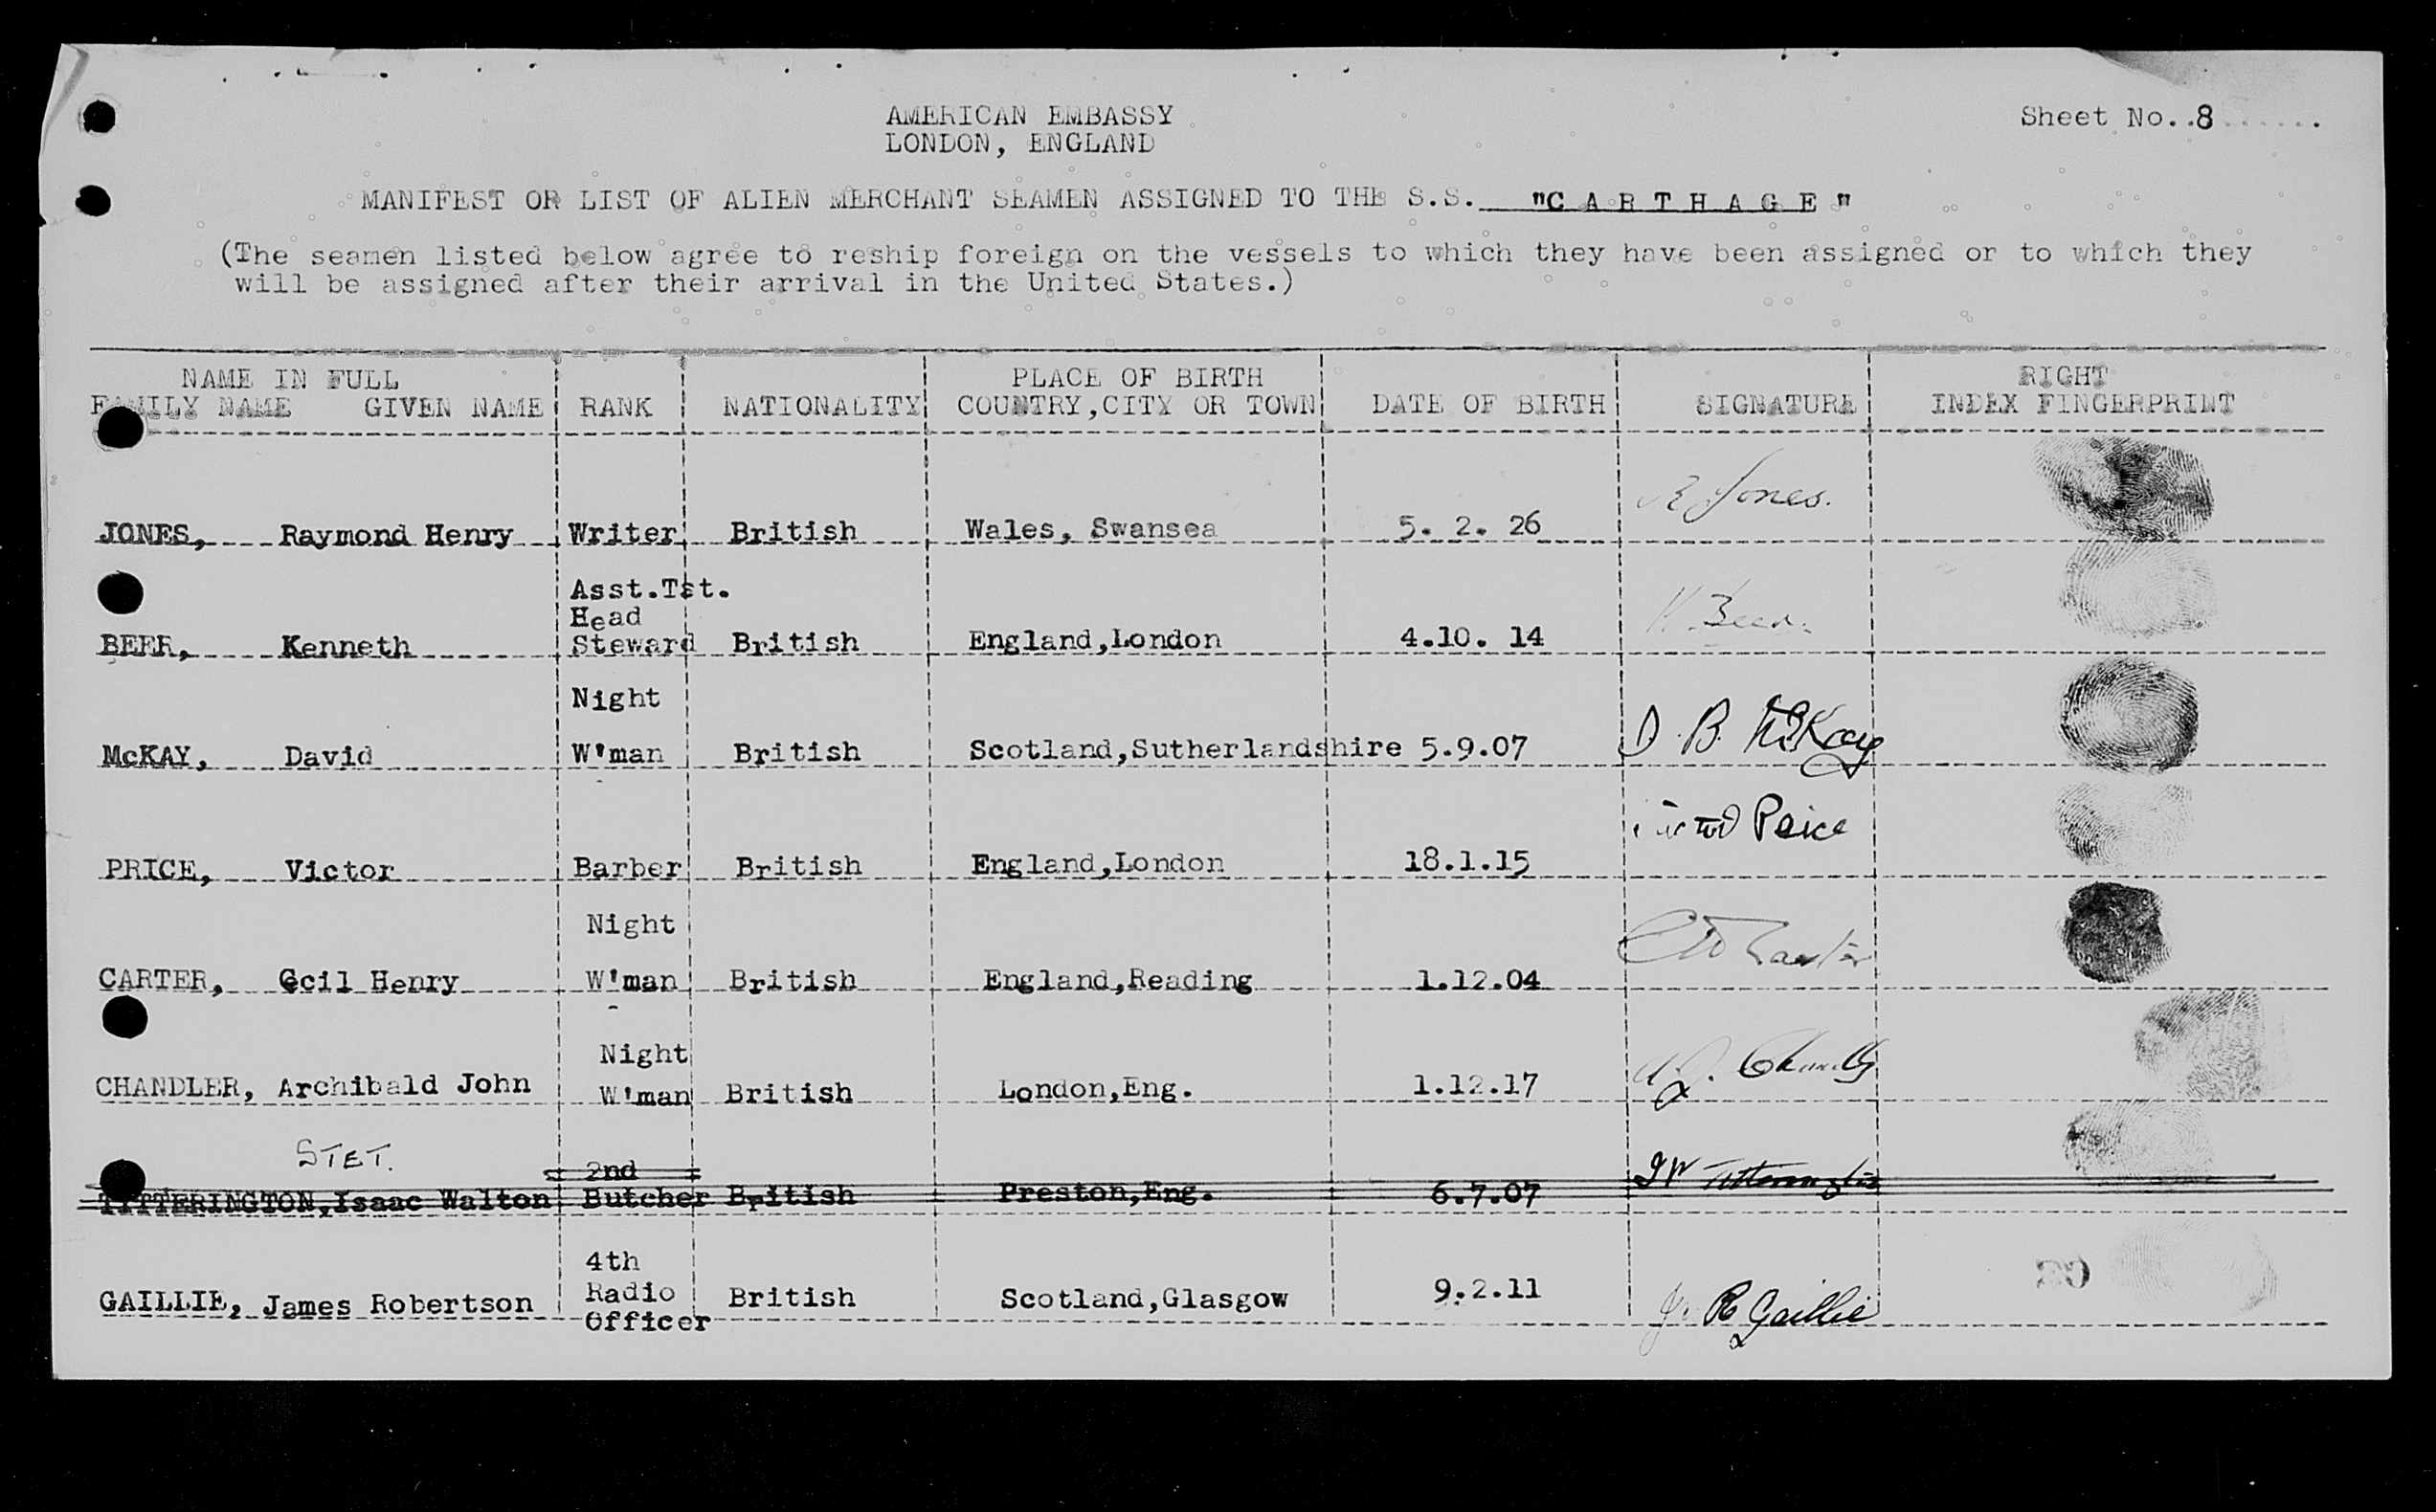 AMERICAN EMBASSY
LONDON, ENGLAND
Sheet No..8......
MANIFEST OR LIST OF ALIEN MERCHANT SEAMEN ASSIGNED TO THE S.S. "C A R T H A G E"
(The seamen listed below agree to reship foreign on the vessels to which they have been assigned or to which they
will be assigned after their arrival in the United States.)
NAME IN FULL PLACE OF BIRTH RIGHT
FAMILY NAME GIVEN NAME RANK NATIONALITY COUNTRY,CITY OR TOWN DATE OF BIRTH SIGNATURE INDEX FINGERPRINT
R Jones.
JONES, Raymond Henry Writer British Wales, Swansea 5. 2. 26
Asst.Tst.
Head
K. Beer.
BEER, Kenneth Steward British England,London 4.10. 14
Night
McKAY, David W'man British Scotland,Sutherlandshire 5.9.07 D. B. McKay
Victor Price
PRICE, Victor Barber British England,London 18.1.15
Night
CARTER, Gcil Henry W'man British England,Reading 1.12.04 Carter
Night
CHANDLER, Archibald John W'man British London,Eng. 1.12.17 A J. Chandler
STET.
2nd
TITTERINGTON,Isaac Walton Butcher British Preston,Eng. 6.7.07 IW Titterington
4th
Radio
GAILLIE, James Robertson Officer British Scotland,Glasgow 9.2.11 J. R Gaillie